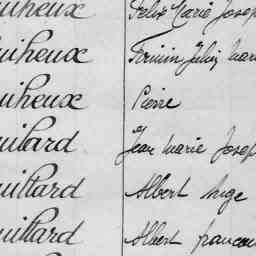 uiheux Félix Marie Joseph
uiheux Firmin Julien Marie
uiheux Pierre
uillard Jean Marie Joseph
uillard Albert
uillard Albert francois